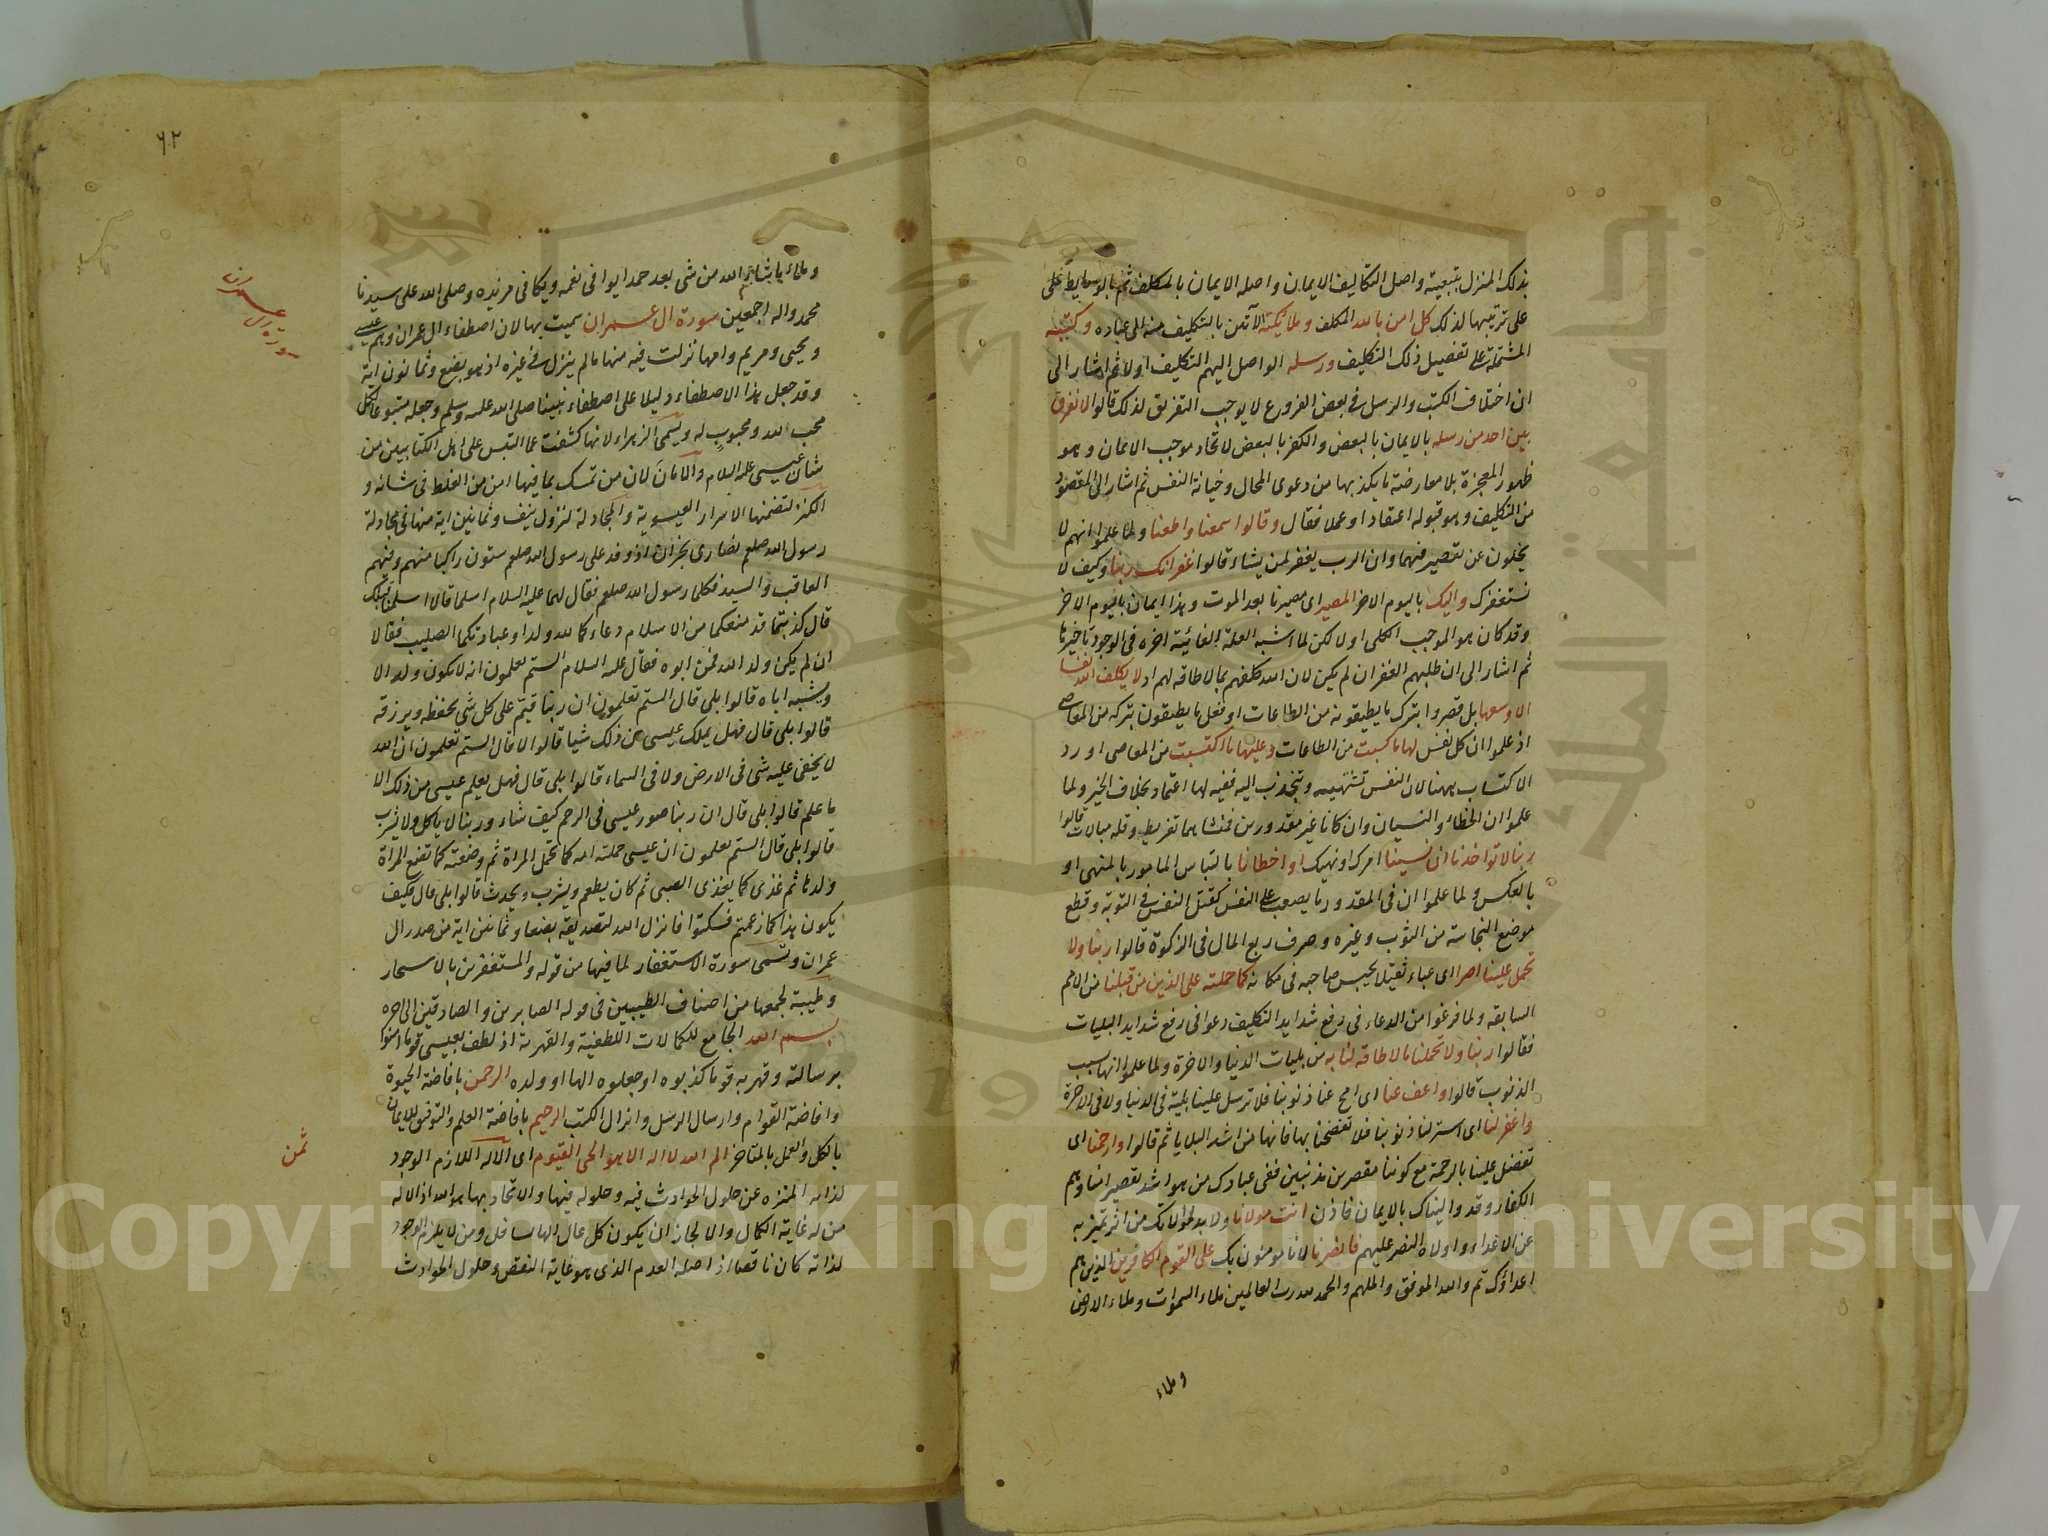 بذلك المنزل بتبعيته واصل التكاليف الايمان واصله الايمان بالمكلف ثم بالوسايط على
على ترتيبها لذلك كل امن بالله المكلف وملائكته الآتين بالتكليف منه الى عباده وكتبه
المشتملة على تفصيل ذلك التكليف ورسله الواصل اليهم التكليف اولا ثم اشار الى
ان اختلاف الكتب والرسل في بعض الفروع لا يوجب التفريق لذلك قالوا لا نفرق
بين احد من رسله بالايمان بالبعض والكفر بالبعض لاتحاد موجب الايمان وهو
ظهور المعجزة بلا معارضة ما يكذبها من دعوى المحال وخيانة النفس ثم اشار الى المقصود
من التكليف وهو قبوله اعتقادا وعملا فقال وقالوا سمعنا واطعنا ولما علموا انهم لا
يخلون عن تقصير فيهما وان الرب يغفر لمن يشاء قالوا غفرانك ربنا وكيف لا
نستغفرك واليك باليوم الاخر المصير اى مصيرنا بعد الموت وهذا ايمان باليوم الاخر
وقد كان هو الموجب الكلى اولا لكن لما اشبه العلة الغائية اخره فى الوجود تاخيرها
ثم اشار الى ان طلبهم الغفران لم يكن لان الله كلفهم بما لا طاقة لهم اذ لا يكلف الله نفسا
الا وسعها بل قصروا بترك ما يطيقونه من الطاعات او فعل ما يطيقون بتركه من المعاصى
اذ علموا ان كل نفس لها ما كسبت من الطاعات وعليها ما اكتسبت من المعاصى اورد
الاكتساب ههنا لان النفس تشتهيه وتنجذب اليه ففيه لها اعتماد بخلاف الخير ولما
علموا ان الخطاء والنسيان وان كانا غير مقدورين فمنشاهما تفريط وقلة مبالات قالوا
ربنا لا تواخذنا ان نسينا امرك او نهيك او اخطانا بالتباس المامور بالمنهى او
بالعكس ولما علموا ان فى المقدور ما يصعب على النفس كقتل النفس فى التوبة وقطع
موضع النجاسة من الثوب وغيره وصرف ربع المال فى الزكوة قالوا ربنا ولا
تحمل علينا اصرا اى عباء ثقيلا يحبس صاحبه فى مكانه كما حملته على الذين من قبلنا من الامم
السابقه ولما فرغوا من الدعاء فى رفع شدايد التكليف دعوا فى رفع شدايد البليات
فقالوا ربنا ولا تحملنا ما لا طاقة لنا به من بليات الدنيا والاخرة ولما علموا انها سبب
الذنوب قالوا واعف عنا اى امح عنا ذنوبنا فلا ترسل علينا بلية فى الدنيا ولا فى الاخرة
واغفر لنا اى استر لنا ذنوبنا فلا تفضحنا بها فانها من اشد البلايا ثم قالوا وارحمنا اى
تفضل علينا بالرحمة مع كوننا مقصرين مذنبين ففى عبادك من هو اشد تقصيرا منا وهم
الكفار وقد واليناك بالايمان فاذن انت مولانا ولا بد لموالاتك من اثر تميز به
عن الاعداء واولاه النصر عليهم فانصرنا لانا مومنون بك على القوم الكافرين الذين هم
اعداؤك تم والله الموفق والملهم والحمد لله رب العالمين ملء السموات وملء الارض
وملء
٦٢
وملء ما شاء الله من شى بعد حمدا يوافى نعمه ويكافى مزيده وصلى الله على سيدنا
محمد واله اجمعين سورة ال عمران سميت بها لان اصطفاء ال عمران وهم عيسى
ويحيى ومريم وامها نزلت فيه منها ما لم ينزل فى غيره اذ هو بضع وثمانون اية
وقد جعل هذا الاصطفاء دليلا على اصطفاء نبينا صلى الله عليه وسلم وجعله متبوعا لكل
محب لله ومحبوب له وتسمى الزهراء لانها كشفت عما التبس على اهل الكتابين من
شان عيسى عليه السلام والامان لان من تمسك بما فيها امن من الغلط فى شانه و
الكنز لتضمنها الاسرار العيسوية والمجادلة لنزول نيف وثمانين اية منها فى مجادلة
رسول الله صلعم نصارى نجران اذ وفد على رسول الله صلعم ستون راكبا منهم وفيهم
العاقب والسيد فكلما رسول الله صلعم فقال لهما عليه السلام اسلما قالا اسلمنا قبلك
قال كذبتما قد منعكما من الاسلام دعاءكما لله ولدا وعبادتكما الصليب فقالا
ان لم يكن ولد الله فمن ابوه فقال عليه السلام الستم تعلمون انه لا يكون ولد الا
ويشبه اباه قالوا بلى قال الستم تعلمون ان ربنا قيم على كل شى يحفظه ويرزقه
قالوا بلى قال فهل يملك عيسى من ذلك شيا قالوا لا قال الستم تعلمون ان الله
لا يخفى عليه شى فى الارض ولا فى السماء قالوا بلى قال فهل يعلم عيسى من ذلك الا
ما علم قالوا بلى قال ان ربنا صور عيسى فى الرحم كيف شاء وربنا لا ياكل ولا يشرب
قالوا بلى قال الستم تعلمون ان عيسى حملته امه كما تحمل المراة ثم وضعته كما تضع المراة
ولدها ثم غذى كما يغذى الصبى ثم كان يطعم ويشرب ويحدث قالوا بلى قال فكيف
يكون هذا كما زعمتم فسكتوا فانزل الله لتصديقه بضعا وثمانين اية من صدر ال
عمران وتسمى سورة الاستغفار لما فيها من قوله والمستغفرين بالاسحار
وطيبة لجمعها من اصناف الطيبين فى قوله الصابرين والصادقين الى اخره
بسم الله الجامع للكمالات اللطفية والقهرية اذ لطف بعيسى قوما امنوا
برسالته وقهر به قوما كذبوه او جعلوه الها او ولده الرحمن بافاضة الحيوة
وافاضة القوام وارسال الرسل وانزال الكتب الرحيم بافاضة العلم والتوفيق للايمان
بالكل والعمل بالمتاخر الم الله لا اله الا هو الحى القيوم اى الاله اللازم الوجود
لذاته المنزه عن حلول الحوادث فيه وحلوله فيها والاتحاد بها هو الله اذ الاله
من له غاية الكمال والا لجاز ان يكون كل عال الها لسافل ومن لا يلزم الوجود
لذاته كان ناقصا اذ اصله العدم الذى هو غاية النقص وحلول الحوادث
سورة ال عمران
ثمن
جامعة الملك سعود
1957
Copyright © King Saud University